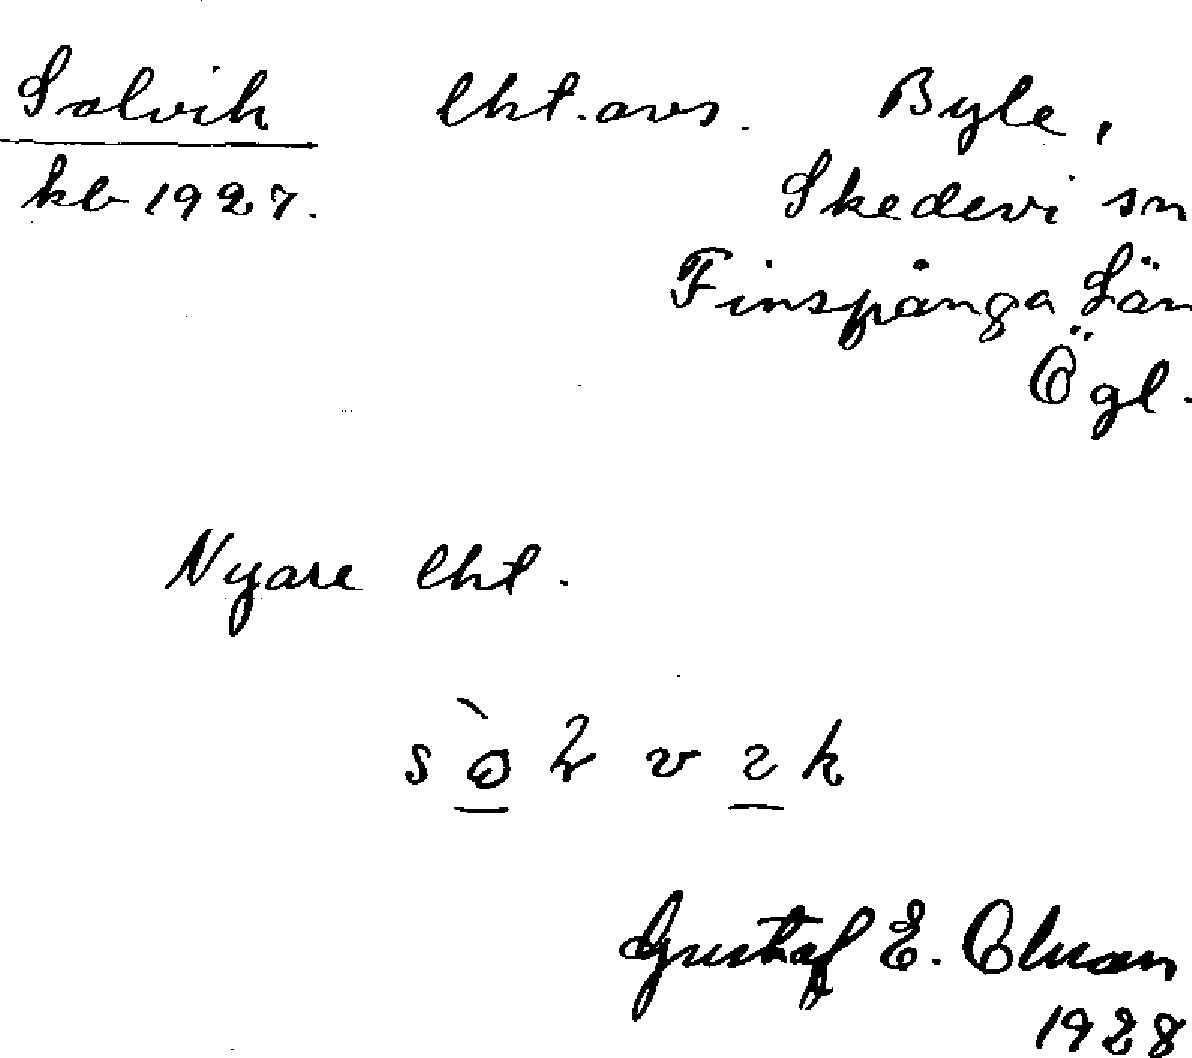 Solvik lht. avs. Byle,
kb 1927. Skedevi sn
Finspånga Län
Ögl.
Nyare lht.
Gustaf E.
1928